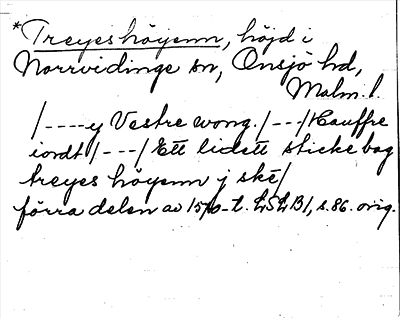 *Treyeshöyenn, höjd i
Norrvidinge sn, Onsjö hd,
Malm. l.
/----y Vestre wong./---/Hauffre
iordt/---/Ett lidett sticke bag
treyes höyenn j ske/
förra delen av 1570-t. LSLB1, s. 86. orig.